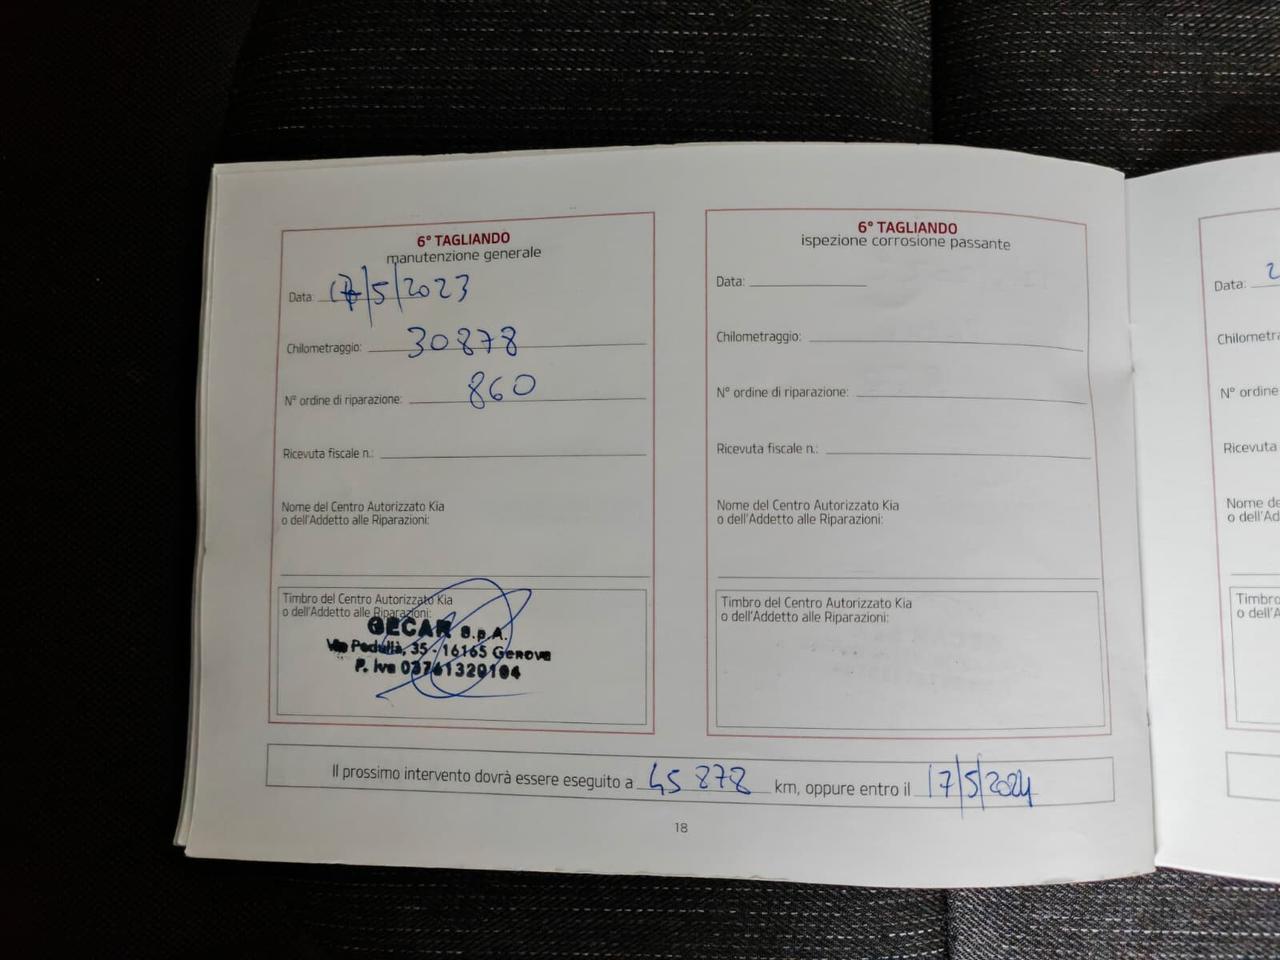 6° TAGLIANDO
manutenzione generale
Data: 17/5/2023
Chilometraggio: 30878
N° ordine di riparazione: 860
Ricevuta fiscale n.:
Nome del Centro Autorizzato Kia
o dell'Addetto alle Riparazioni:
Timbro del Centro Autorizzato Kia
o dell'Addetto alle Riparazioni:
GECAR S.p.A.
Via Pedullà, 35 - 16165 Genova
P. Iva 03761320104
6° TAGLIANDO
ispezione corrosione passante
Data:
Chilometraggio:
N° ordine di riparazione:
Ricevuta fiscale n.:
Nome del Centro Autorizzato Kia
o dell'Addetto alle Riparazioni:
Timbro del Centro Autorizzato Kia
o dell'Addetto alle Riparazioni:
Il prossimo intervento dovrà essere eseguito a 45878 km, oppure entro il 17/5/2024
18
Data: 2
Chilometr
N° ordine
Ricevuta
Nome de
o dell'Ad
Timbro
o dell'A